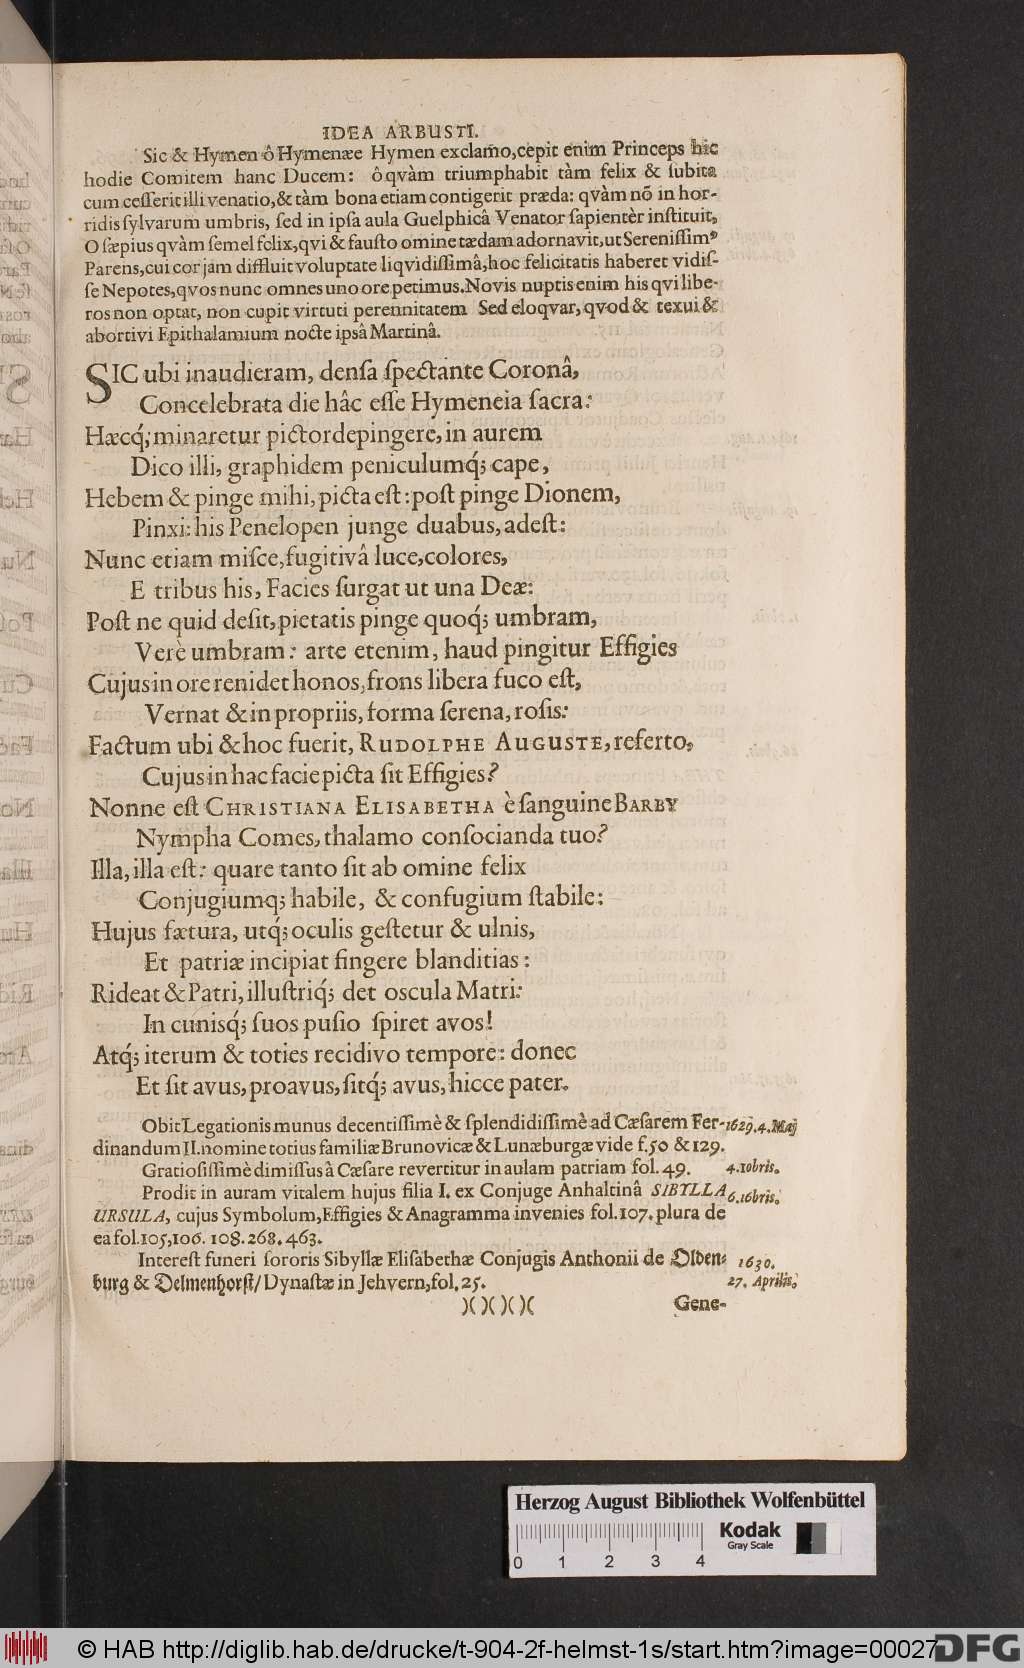 IDEA ARBUSTI.
Sic & Hymen ô Hymenæe Hymen exclamo, cepit enim Princeps hic
hodie Comitem hanc Ducem: ô qvàm triumphabit tàm felix & ſubita
cum ceſſerit illi venatio, & tàm bona etiam contigerit præda: qvàm nõ in hor-
ridis ſylvarum umbris, ſed in ipſa aula Guelphicâ Venator ſapientèr inſtituit,
O ſæpius qvàm ſemel felix, qvi & fauſto omine tædam adornavit, ut Sereniſſimꝰ
Parens, cui cor jam diffluit voluptate liqvidiſſimâ, hoc felicitatis haberet vidiſ-
ſe Nepotes, qvos nunc omnes uno ore petimus. Novis nuptis enim his qvi libe-
ros non optat, non cupit virtuti perennitatem Sed eloqvar, qvod & texui &
abortivi Epithalamium nocte ipsâ Martinâ.
SIC ubi inaudieram, denſa ſpectante Coronâ,
Concelebrata die hâc eſſe Hymeneia ſacra:
Hæcq́; minaretur pictor depingere, in aurem
Dico illi, graphidem peniculumq́; cape,
Hebem & pinge mihi, picta eſt: poſt pinge Dionem,
Pinxi: his Penelopen junge duabus, adeſt:
Nunc etiam miſce, fugitivâ luce, colores,
E tribus his, Facies ſurgat ut una Deæ:
Poſt ne quid deſit, pietatis pinge quoq́; umbram,
Verè umbram: arte etenim, haud pingitur Effigies
Cujus in ore renidet honos, frons libera fuco eſt,
Vernat & in propriis, forma ſerena, roſis:
Factum ubi & hoc fuerit, RUDOLPHE AUGUSTE, referto,
Cujus in hac facie picta ſit Effigies?
Nonne eſt CHRISTIANA ELISABETHA è ſanguine BARBY
Nympha Comes, thalamo conſocianda tuo?
Illa, illa eſt: quare tanto ſit ab omine felix
Conjugiumq; habile, & confugium ſtabile:
Hujus fætura, utq́; oculis geſtetur & ulnis,
Et patriæ incipiat fingere blanditias:
Rideat & Patri, illuſtriq́; det oscula Matri:
In cunisq́; ſuos puſio ſpiret avos!
Atq́; iterum & toties recidivo tempore: donec
Et ſit avus, proavus, ſitq́; avus, hicce pater.
Obit Legationis munus decentiſſimè & ſplendidiſſimè ad Cæſarem Fer- 1629. 4. Maij
dinandum II. nomine totius familiæ Brunovicæ & Lunæburgæ vide f. 50 & 129.
Gratioſiſſimè dimiſſus à Cæſare revertitur in aulam patriam fol. 49. 4. 10bris.
Prodit in auram vitalem hujus filia I. ex Conjuge Anhaltinâ SIBYLLA 6. 16bris.
URSULA, cujus Symbolum, Effigies & Anagramma invenies fol. 107. plura de
ea fol. 105, 106. 108. 268. 463.
Intereſt funeri ſororis Sibyllæ Eliſabethæ Conjugis Anthonii de Olden- 1630.
burg & Delmenhorſt/ Dynaſtæ in Jehvern, fol. 25. 27. Aprilis.
)( )( )( )( Gene-
Herzog August Bibliothek Wolfenbüttel
Kodak
Gray Scale
0 1 2 3 4
© HAB http://diglib.hab.de/drucke/t-904-2f-helmst-1s/start.htm?image=00027
DFG